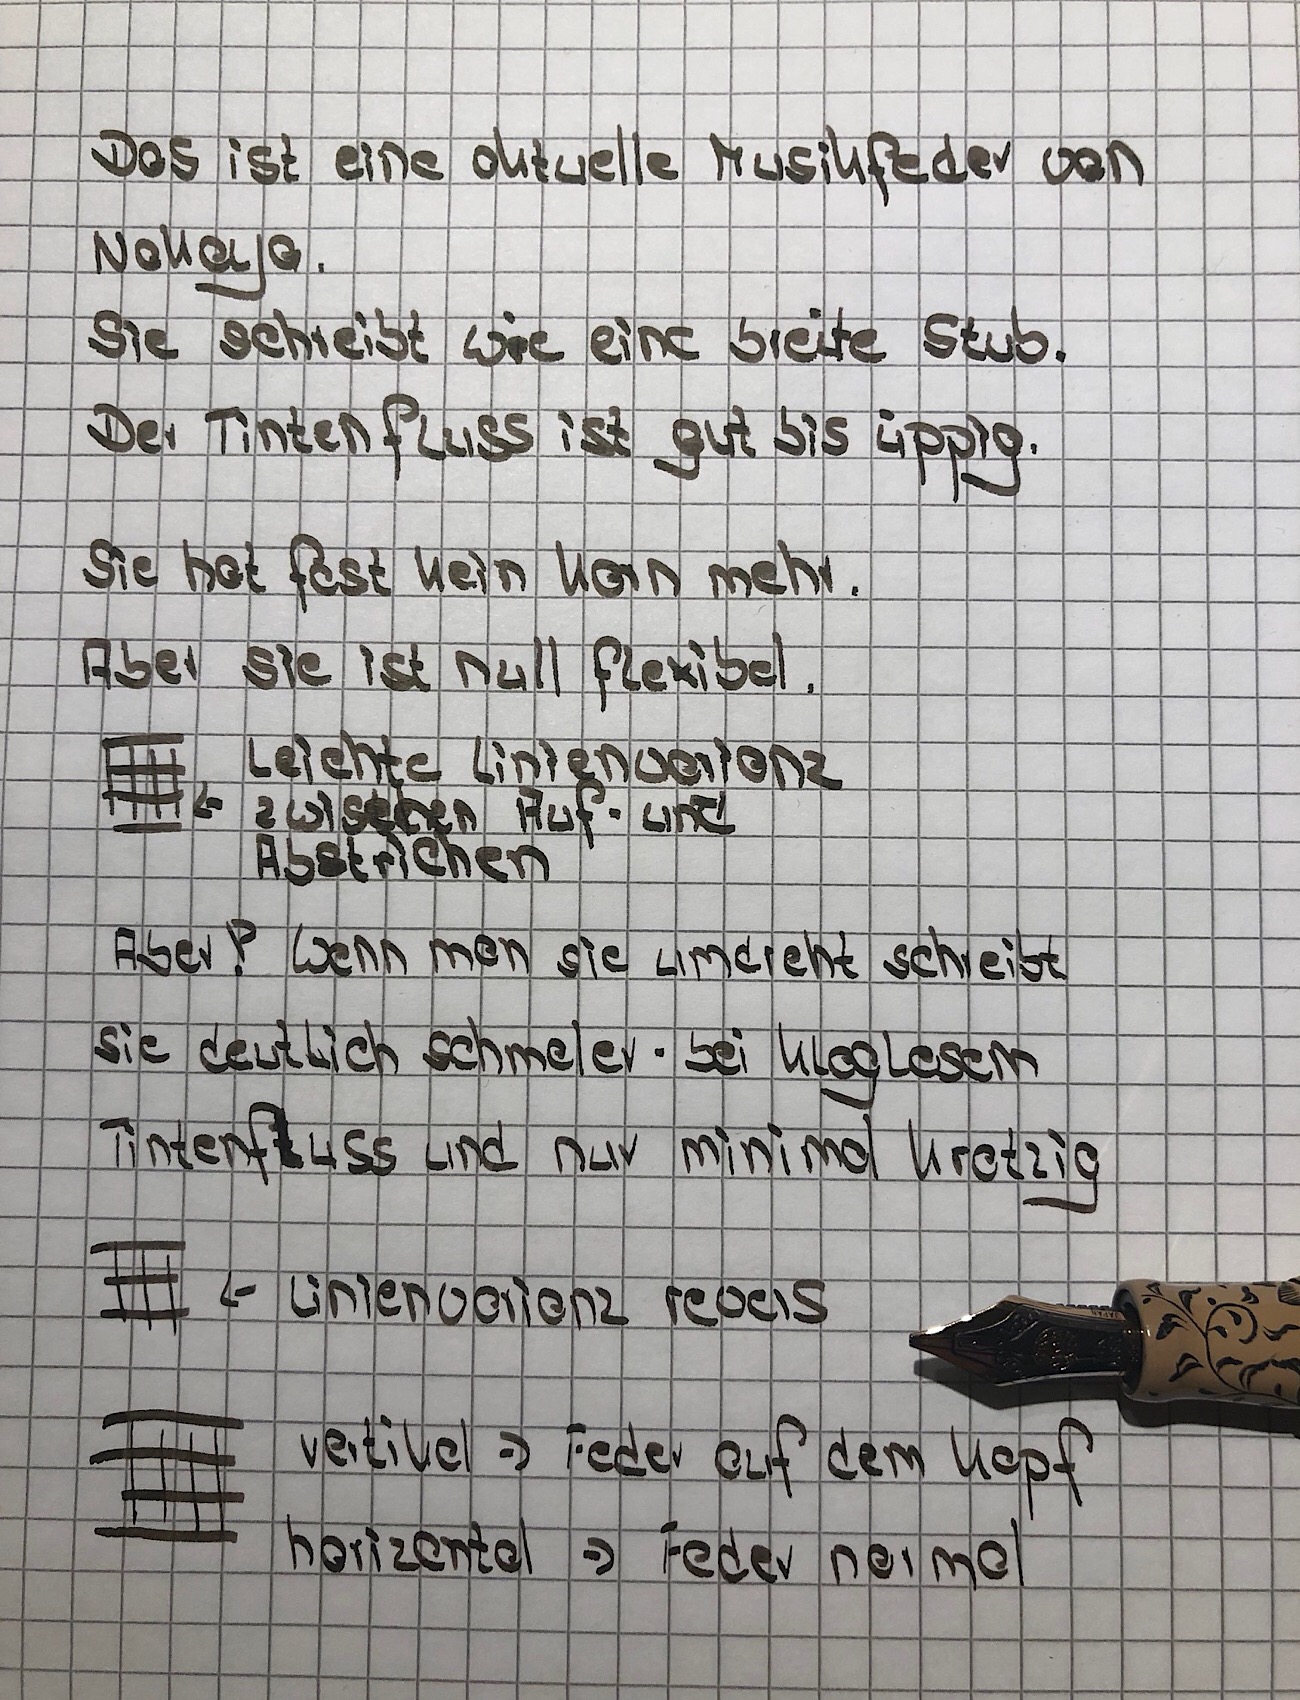 Das ist eine aktuelle Musikfeder von
Nakaya.
Sie schreibt wie eine breite Stub.
Der Tintenfluss ist gut bis üppig.
Sie hat fast kein Korn mehr.
Aber sie ist null flexibel.
Leichte Linienvarianz
← zwischen Auf- und
Abstrichen
Aber? Wenn man sie umdreht schreibt
sie deutlich schmaler - bei klaglosem
Tintenfluss und nur minimal kratzig
← Linienvarianz revers
vertikal ⇒ Feder auf dem Kopf
horizontal ⇒ Feder normal